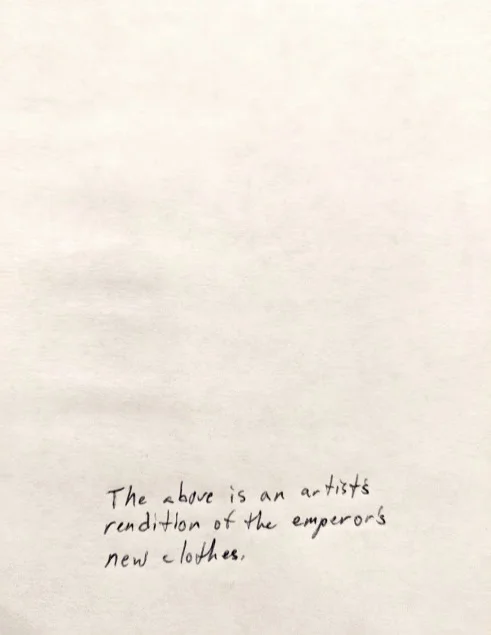 The above is an artist's
rendition of the emperor's
new clothes.